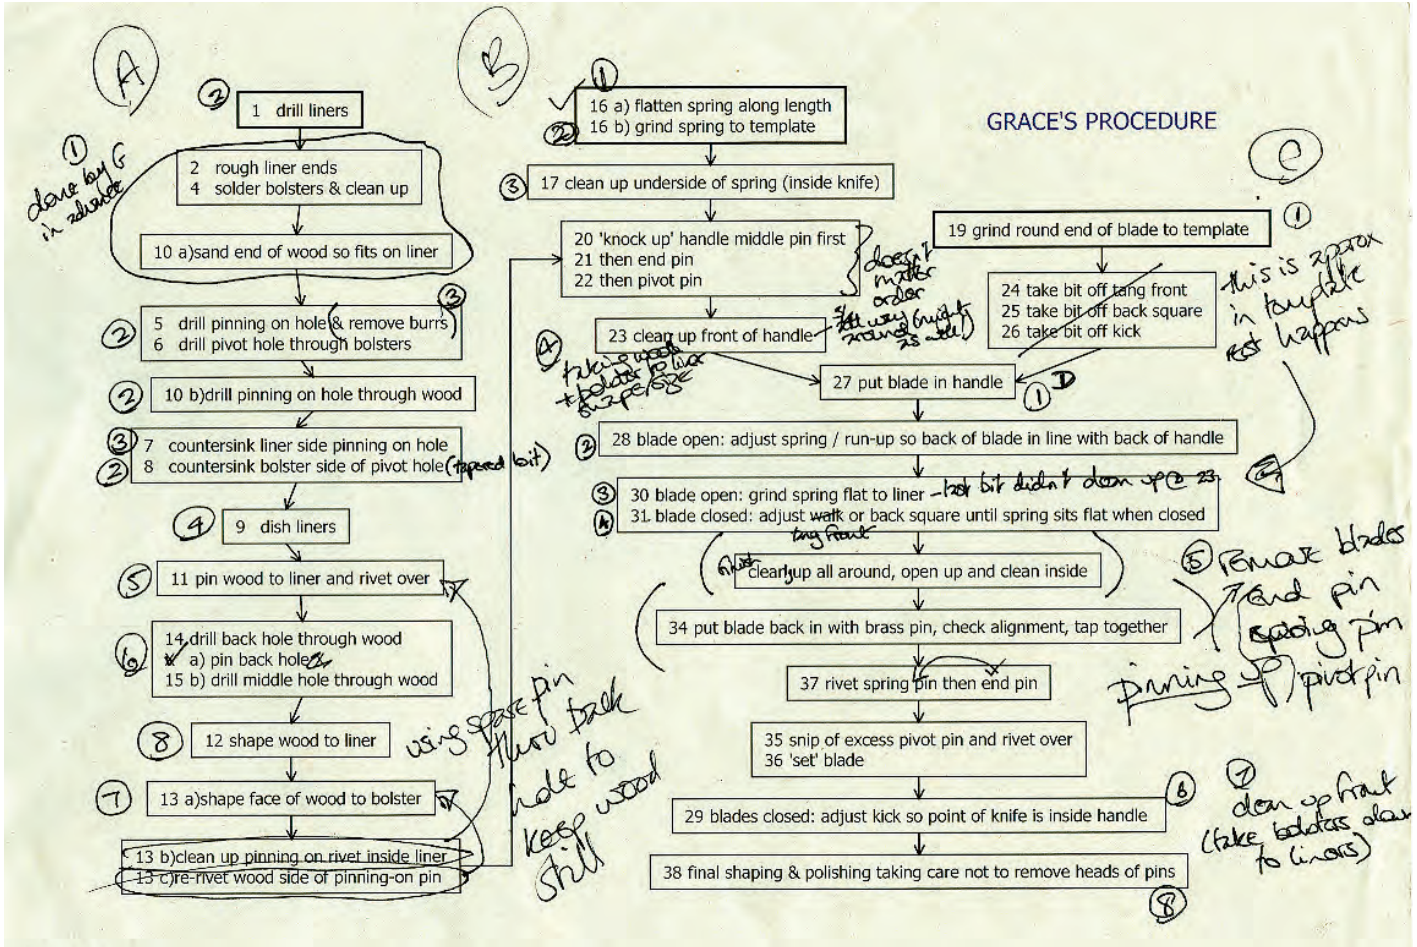 A
2
1 drill liners
1
done by G
in advance
2 rough liner ends
4 solder bolsters & clean up
10 a)sand end of wood so fits on liner
3
2
5 drill pinning on hole (& remove burrs)
6 drill pivot hole through bolsters
2
10 b)drill pinning on hole through wood
3
7 countersink liner side pinning on hole
2
8 countersink bolster side of pivot hole (tapered bit)
4
9 dish liners
5
11 pin wood to liner and rivet over
6
14 drill back hole through wood
a) pin back hole &
15 b) drill middle hole through wood
8
12 shape wood to liner
7
13 a)shape face of wood to bolster
13 b)clean up pinning on rivet inside liner
13 c)re-rivet wood side of pinning-on pin
using spare pin
thro back
hole to
keep wood
still
B
1
16 a) flatten spring along length
2
16 b) grind spring to template
3
17 clean up underside of spring (inside knife)
20 'knock up' handle middle pin first
21 then end pin
22 then pivot pin
doesn't
matter
order
4
23 clean up front of handle
all way
around (might
as well)
taking wood
+ bolster to liner
shape/size
GRACE'S PROCEDURE
C
1
19 grind round end of blade to template
24 take bit off tang front
25 take bit off back square
26 take bit off kick
this is approx
in template
rest happens
27 put blade in handle
1 D
2
28 blade open: adjust spring / run-up so back of blade in line with back of handle
2
3
30 blade open: grind spring flat to liner - last bit didn't clean up @ 23
4
31 blade closed: adjust walk or back square until spring sits flat when closed
tang front
finish
clean up all around, open up and clean inside
34 put blade back in with brass pin, check alignment, tap together
5 remove blades
end pin
spring pin
pinning up pivot pin
37 rivet spring pin then end pin
35 snip of excess pivot pin and rivet over
36 'set' blade
6
29 blades closed: adjust kick so point of knife is inside handle
7
clean up front
(take bolsters down
to liners)
38 final shaping & polishing taking care not to remove heads of pins
8